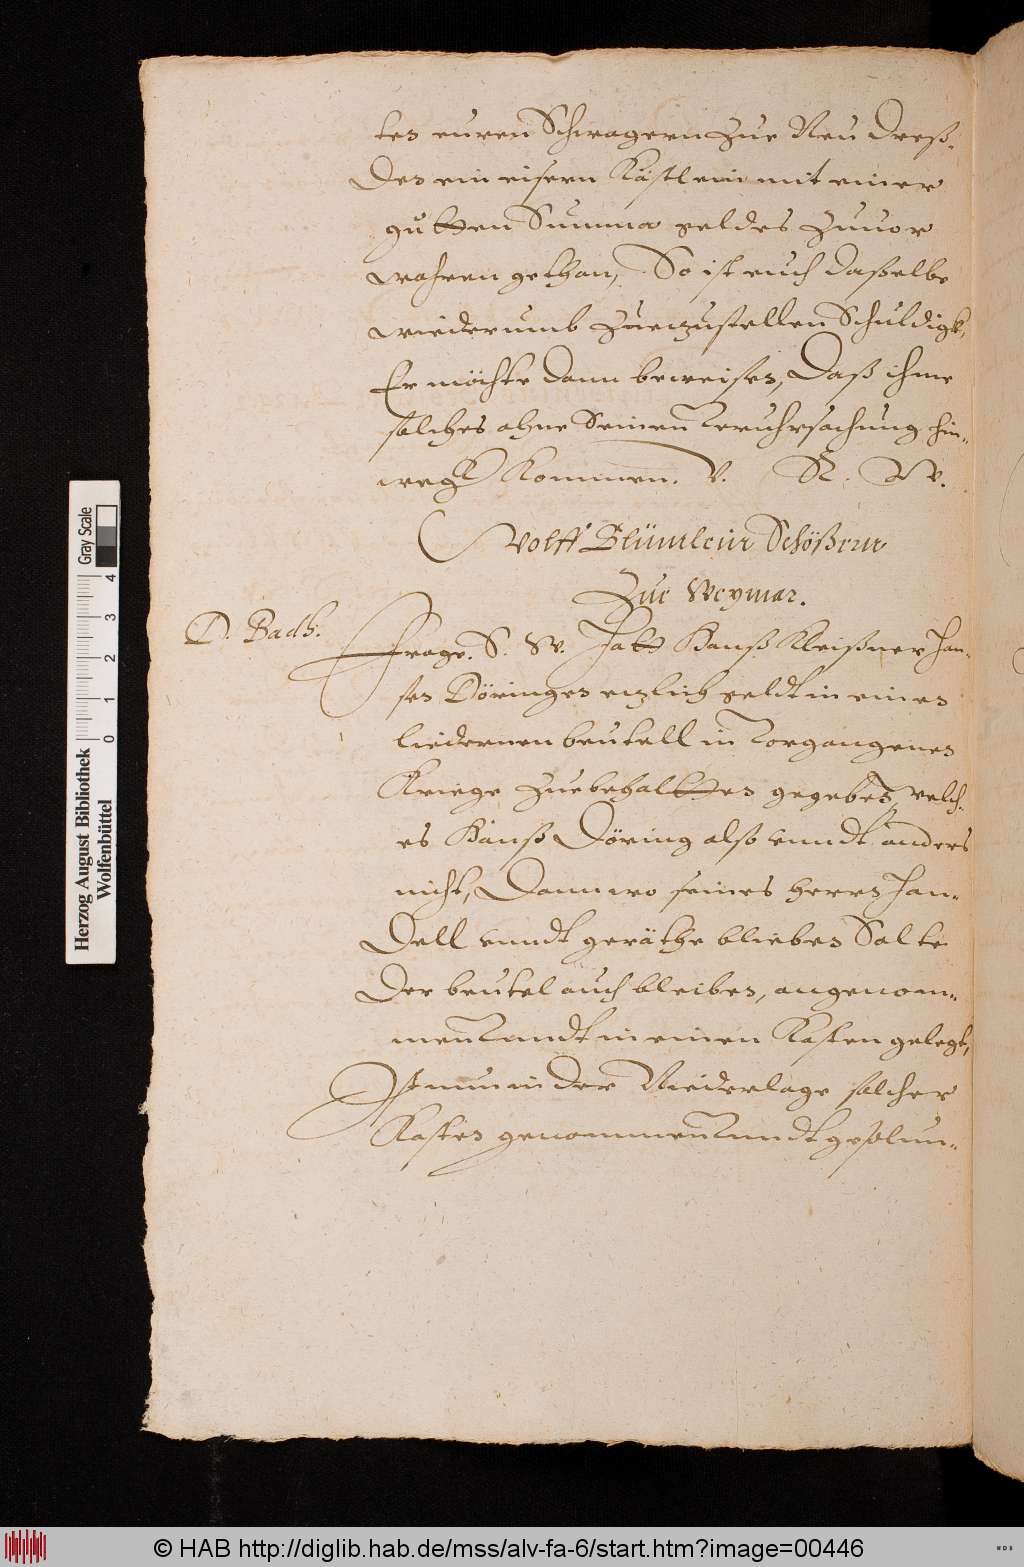 ten euren Schwagern Zue Neu Dreß-
den ein eisern Kästlein mit einer
gutten Summa geldes Zuuor
wahren gethan, So ist euch daßelbe
wiederumb Zuenzustellen Schuldigk,
Er möchte dann beweisen, Daß ihme
solches ohne Seinen Veruhrsachung hin-
wegk Kommen. V. R. W.
Wolff Blümlein Schößern
Zue Weymar.
D. Badh:
Frage. S. W. Hatt Hanß Kleißner Han-
sen Döringen etzlich geldt in einen
liedernen beutell in vorgangenen
Kriege Zuebehaltten gegeben, welch-
es Hanß Döring also vnndt anders
nicht, Dann wo seines herrn Han-
dell vnndt geräthe blieben Solte
Der beutel auch bleiben, angenom-
men vnndt in einen Kasten gelegt,
Ist nun in der Niederlage solcher
Kasten genommen vnndt geplun-
Herzog August Bibliothek
Wolfenbüttel
Gray Scale
0 1 2 3 4
© HAB http://diglib.hab.de/mss/alv-fa-6/start.htm?image=00446